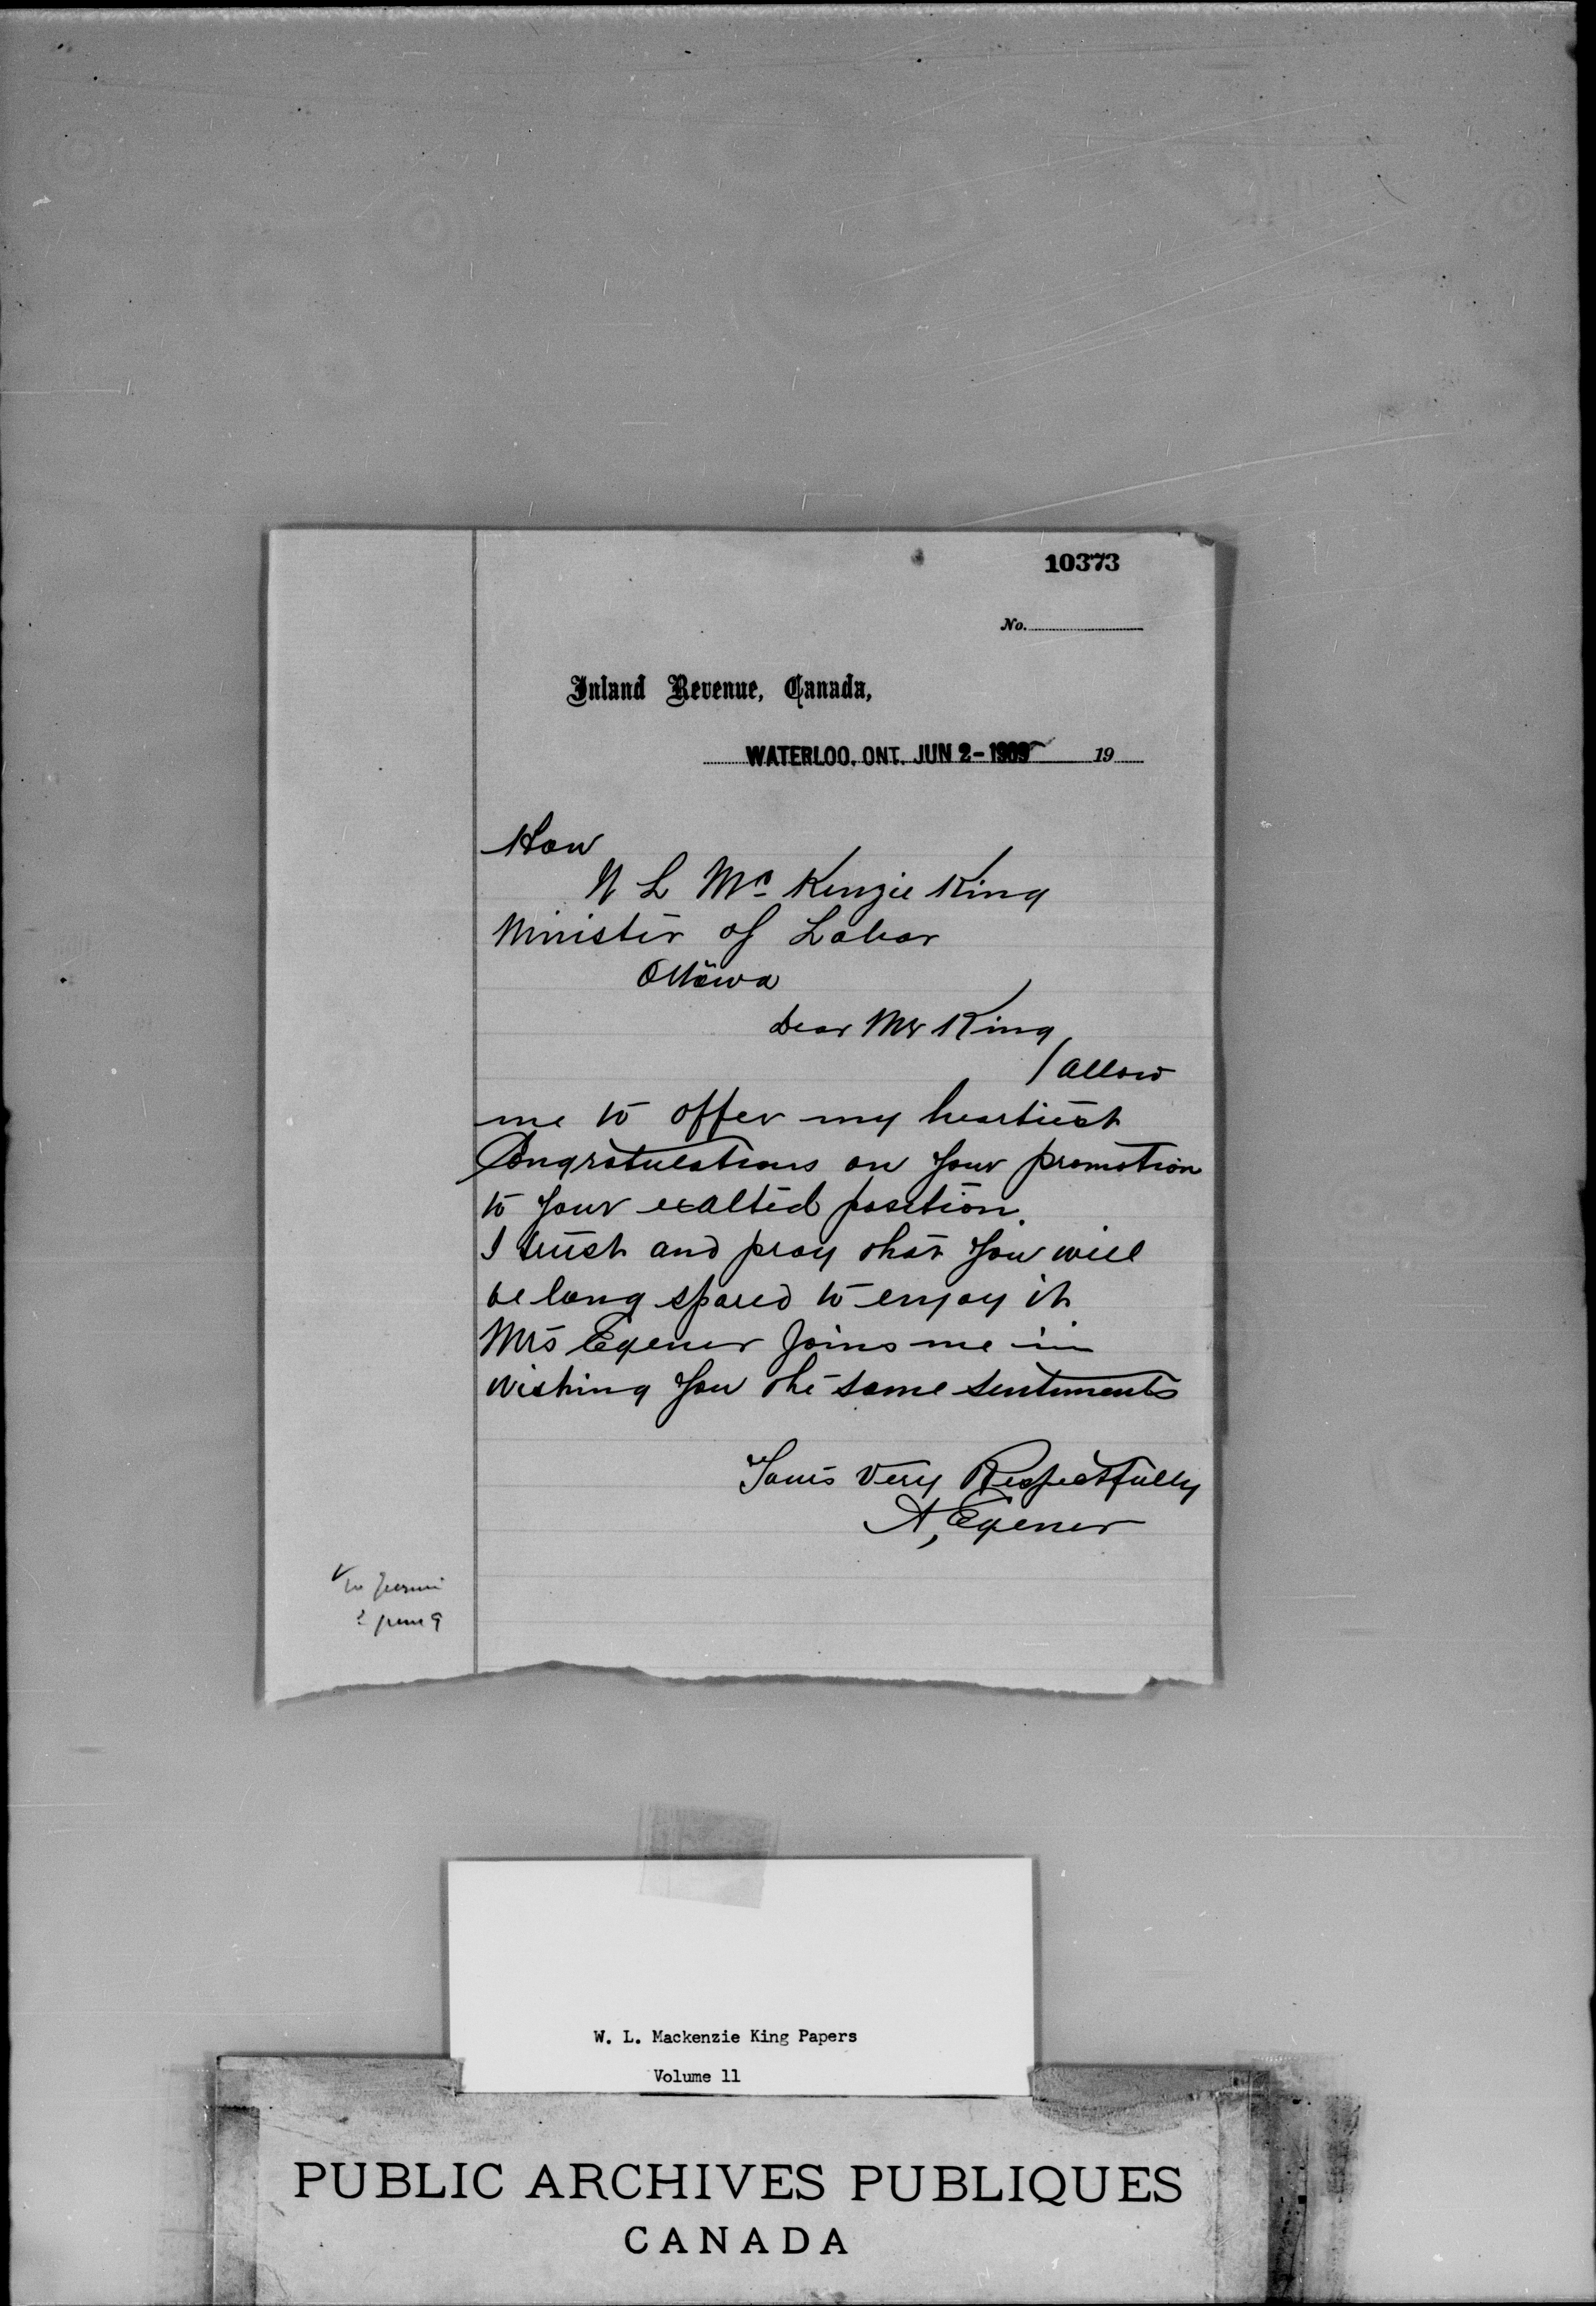 10373
No.
Inland Revenue, Canada,
WATERLOO, ONT. JUN 2-1909 19
Hon
W L Mc Kenzie King
Minister of Labor
Ottawa
Dear Mr King
allow
me to offer my heartiest
Congratulations on your promotion
to your exalted position.
I trust and pray that you will
be long spared to enjoy it
Mrs Egener Joins me in
wishing you the same sentiments
Yours Very Respectfully
A, Egener
June 9
W. L. Mackenzie King Papers
Volume 11
PUBLIC ARCHIVES PUBLIQUES
CANADA